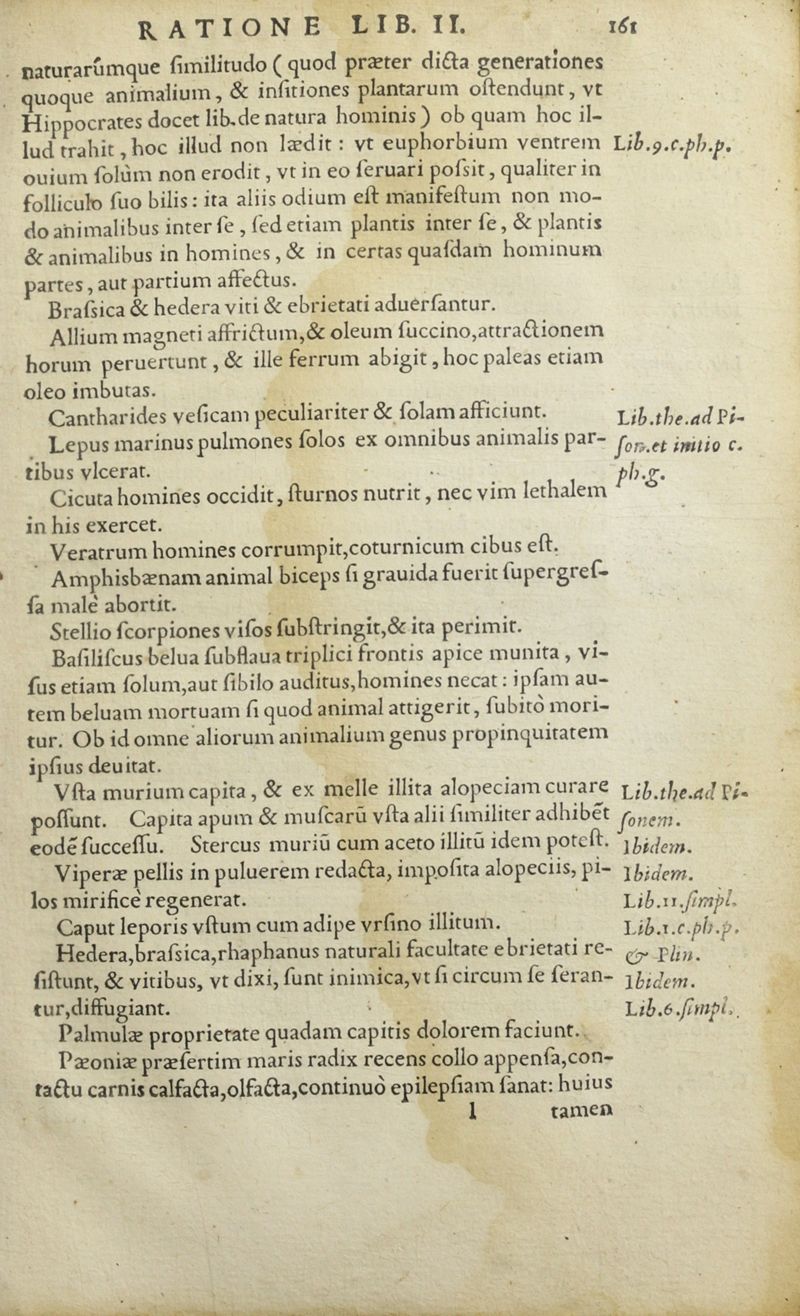 RATIONE LIB. II. 161
naturarûmque ſimilitudo ( quod præter dicta generationes
quoque animalium, & inſitiones plantarum oſtendunt, vt
Hippocrates docet lib. de natura hominis ) ob quam hoc il-
lud trahit, hoc illud non lædit : vt euphorbium ventrem Lib.9.c.ph.p.
ouium ſolùm non erodit, vt in eo ſeruari poſsit, qualiter in
folliculo ſuo bilis : ita aliis odium eſt manifeſtum non mo-
do animalibus inter ſe, ſed etiam plantis inter ſe, & plantis
& animalibus in homines, & in certas quaſdam hominum
partes, aut partium affectus.
Braſsica & hedera viti & ebrietati aduerſantur.
Allium magneti affrictum,& oleum ſuccino,attractionem
horum peruertunt, & ille ferrum abigit, hoc paleas etiam
oleo imbutas.
Cantharides veſicam peculiariter & ſolam afficiunt. Lib.the.ad Pi-
Lepus marinus pulmones ſolos ex omnibus animalis par- ſon.et initio c.
tibus vlcerat. ph.g.
Cicuta homines occidit, ſturnos nutrit, nec vim lethalem
in his exercet.
Veratrum homines corrumpit,coturnicum cibus eſt.
Amphisbænam animal biceps ſi grauida fuerit ſupergreſ-
ſa malè abortit.
Stellio ſcorpiones viſos ſubſtringit,& ita perimit.
Baſiliſcus belua ſubflaua triplici frontis apice munita, vi-
ſus etiam ſolum,aut ſibilo auditus,homines necat : ipſam au-
tem beluam mortuam ſi quod animal attigerit, ſubitò mori-
tur. Ob id omne aliorum animalium genus propinquitatem
ipſius deuitat.
Vſta murium capita, & ex melle illita alopeciam curare Lib.the.ad Pi-
poſſunt. Capita apum & muſcarū vſta alii ſimiliter adhibēt ſonem.
eodē ſucceſſu. Stercus muriū cum aceto illitū idem poteſt. Ibidem.
Viperæ pellis in puluerem redacta, impoſita alopeciis, pi- Ibidem.
los mirificè regenerat. Lib.11.ſimpl.
Caput leporis vſtum cum adipe vrſino illitum. Lib.1.c.ph.p.
Hedera,braſsica,rhaphanus naturali facultate ebrietati re- & Plin.
ſiſtunt, & vitibus, vt dixi, ſunt inimica,vt ſi circum ſe ſeran- Ibidem.
tur,diffugiant. Lib.6.ſimpl.
Palmulæ proprietate quadam capitis dolorem faciunt.
Pæoniæ præſertim maris radix recens collo appenſa,con-
tactu carnis calfacta,olfacta,continuò epilepſiam ſanat: huius
l tamen